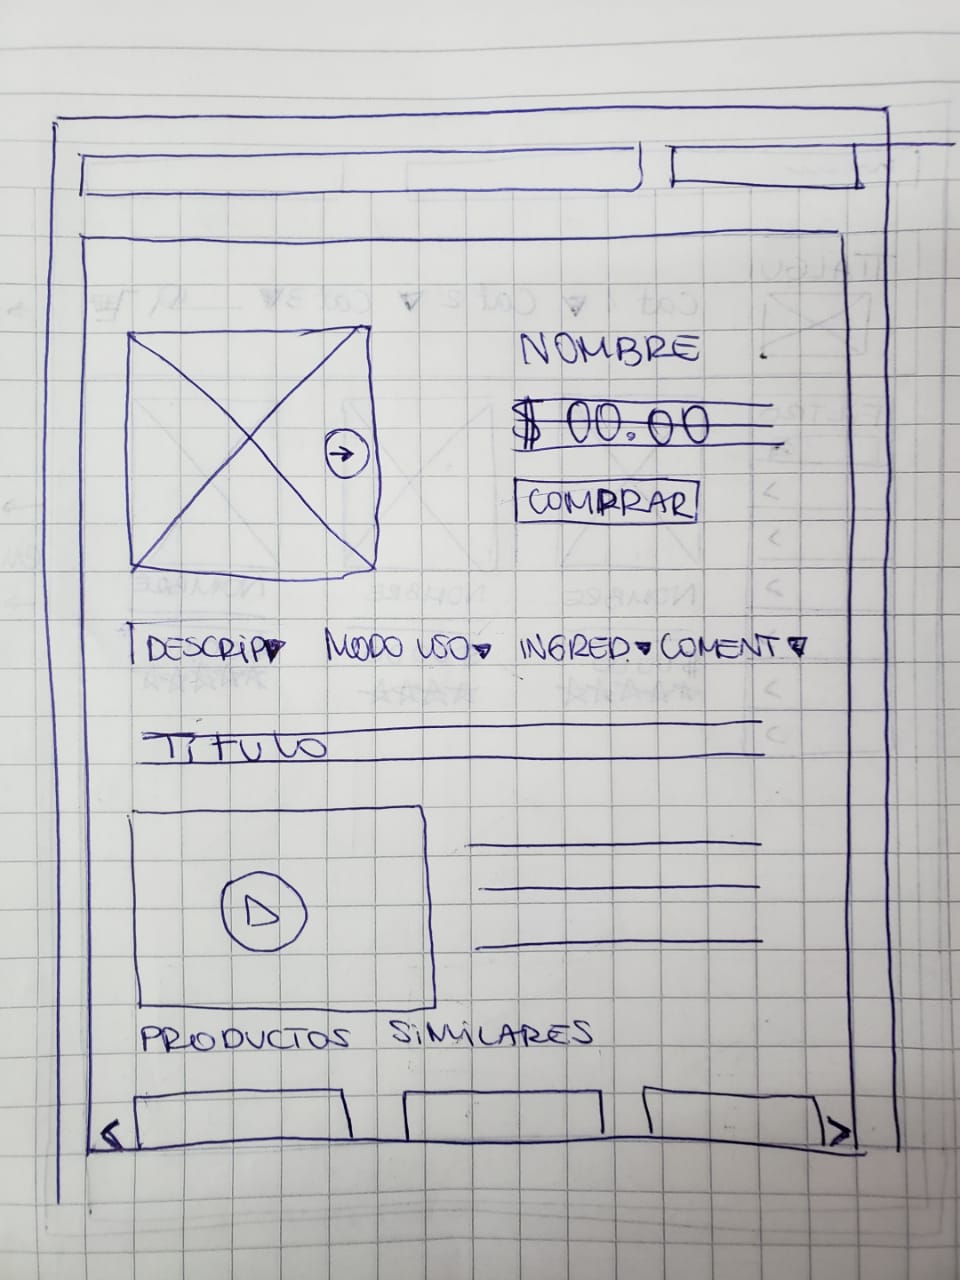 NOMBRE
$ 00.00
COMPRAR
DESCRIP▼ MODO USO▼ INGRED▼ COMENT▼
TÍTULO
PRODUCTOS SIMILARES